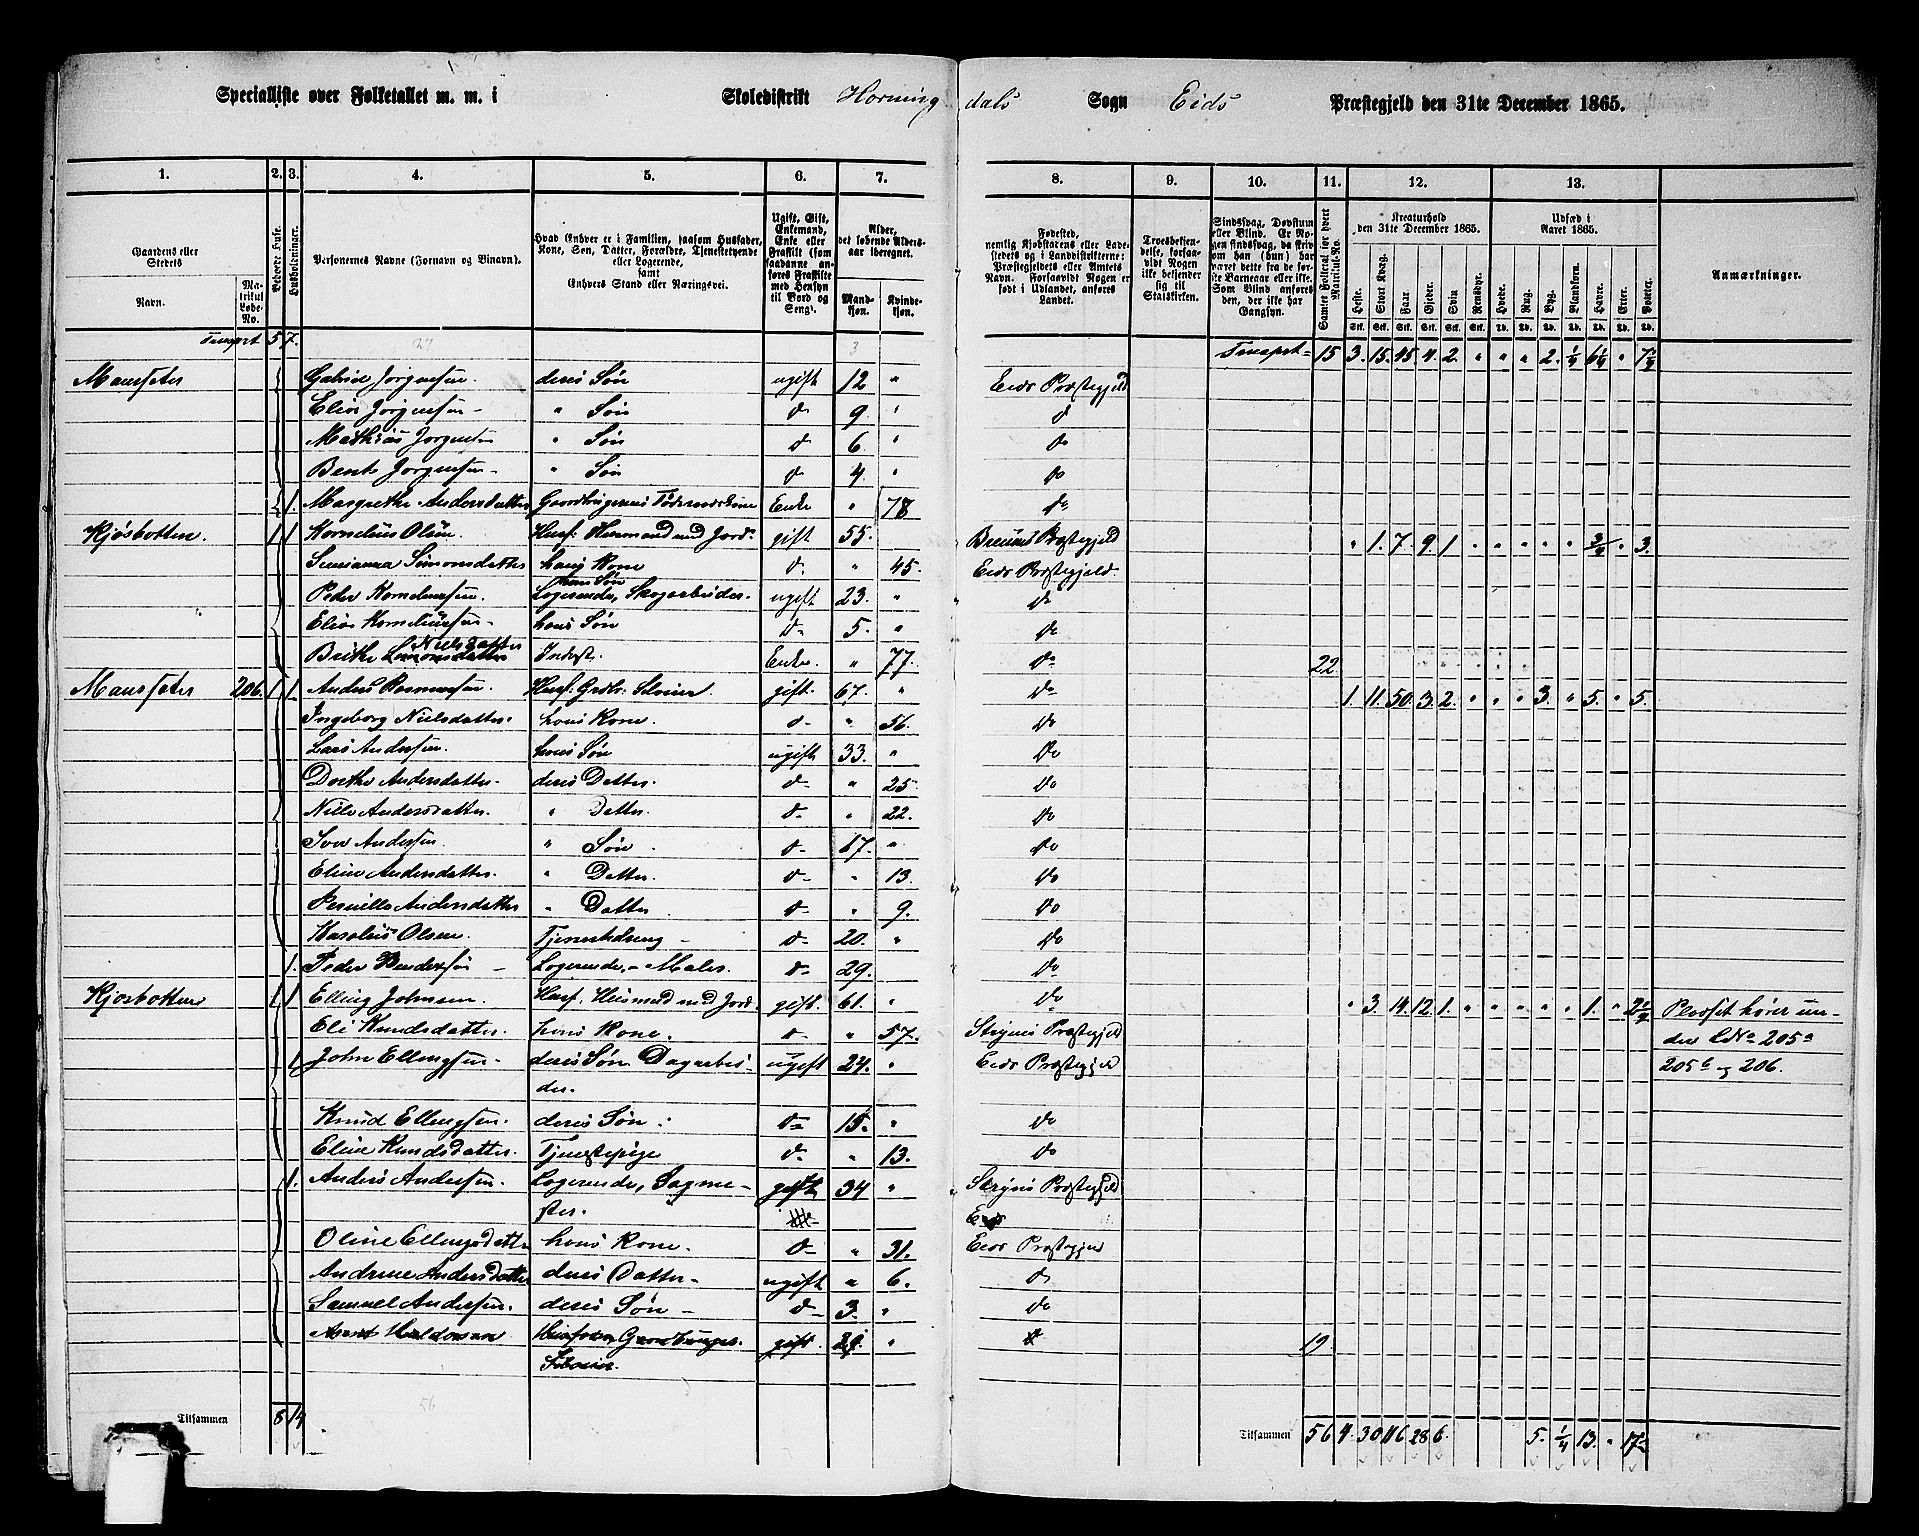 Specialliste over Folketallet m. m. i Skoledistrikt Hornindals Sogn Eids Præstegjeld den 31te December 1865.
1. 2. 3. 4. 5. 6. 7. 8. 9. 10. 11. 12. 13.
Gaardens eller Stedets
Navn. Matrikul Løbe-No.
Beboede Huse.
Husholdninger.
Personernes Navne (Fornavn og Tilnavn).
Hvad Enhver er i Familien, saasom Husfader, Kone, Søn, Datter, Forældre, Tjenestetyende eller Logerende, samt Enhvers Stand eller Næringsvei.
Ugift, Gift, Enkemand, Enke eller Fraskilt (som saadanne anføres Fraskilte med Hensyn til Bord og Seng).
Alder, det løbende Aldersaar iberegnet.
Mandkjøn. Kvindekjøn.
Fødested, nemlig Kjøbstadens eller Ladestedets og i Landdistrikterne: Præstegjeldets eller Amtets Navn. Forsaavidt Nogen er født i Udlandet, anføres Landet.
Troesbekjendelse, forsaavidt Nogen ikke bekjender sig til Statskirken.
Sindssvag, Døvstum eller Blind. Er Nogen sindssvag, da skrives dette fra de første Barneaar eller ikke. Som Blind anføres den, der ikke har Gangsyn.
Samlet Folketal for hvert Matrikul-No.
Kreaturhold den 31te December 1865.
Heste. Stort Kvæg. Faar. Gjeder. Sviin Rensdyr.
Udsæd i Aaret 1865.
Hvede. Rug. Byg. Blandkorn. Havre. Erter. Poteter.
Anmærkninger.
Transport 5 7. Transport 15 3. 15. 45. 4. 2. " " " 2. 1/4 6 1/4 " 7 1/2
Maurseter Gabriel Jørgensen. deres Søn ugift 12 " Eids Præstegjeld
Elias Jørgensen " Søn do 9. " do
Mathias Jørgensen " Søn do 6. " do
Bent Jørgensen " Søn do 4. " do
1. Margrethe Andersdatter Enke " 78 do
Kjøsbotten. 1 1 Kornelius Olsen. Husf: Husmand med Jord gift 55. Præstegjeld " 1. 7. 9. 1 " " " " " 3/4 " 3.
Simonsdatter hans Kone do " 45. Eids Præstegjeld.
Peder Korneliussen. hans Søn Logerende, Skogarbeider ugift 23. " do
Elias Korneliussen hans Søn do 5. " do
Brithe Nielsdatter Inderst. Enke. " 77. do 22
Maurseter 206. 1 1. Anders Rasmussen. Husf: Grdbr: Selveier gift. 67. " do 1. 11. 50. 3. 2. " " " 3. " 5. " 5.
Ingeborg Nielsdatter. hans Kone. do " 56. do
Lars Andersen. hans Søn ugift 33. " do
Dorthe Andersdatter. deres Datter. do " 25 do
Andersdatter. " Datter do " 22. do
Iver Andersen. " Søn do 17. " do
Eline Andersdatter. " Datter do " 13. do
Pernille Andersdatter " Datter do " 9. do
Karolius Olsen. Tjenestedreng do 20. " do
1. Peder Logerende, Maler. do 29. do
Kjøsbotten 1 1 Elling Johnsen. Husf. Husmand med Jord. gift. 61. " do " 3. 14. 12. 1. " " " " " 1. " 2 1/2 Pladset hører un-
Eli Knudsdatter. hans Kone. do " 57. Stryns Præstegjeld der LNo 205a
1 John Ellingsen. deres Søn Dagarbei- ugift 24. " Eids Præstegjeld 205b og 206.
der.
Knud Ellingsen. deres Søn. do 15. " do
Eline Knudsdatter. Tjenestepige do " 13. do
1. Anders Andersen. Logerende, Sagme- gift 34 " Stryns Præstegjeld
ster.
Oline Ellingsdatter hans Kone. do " 31. Eids Præstegjeld
Andrine Andersdatter deres Datter ugift " 6. do
Samuel Andersen. deres Søn do 3. " do
Husfader Gaardbruger. gift. 29. " 19
Selveier.
56
Tilsammen 8 14 Tilsammen 56 4. 30 116 28 6. 5. 1/4 13. " 17